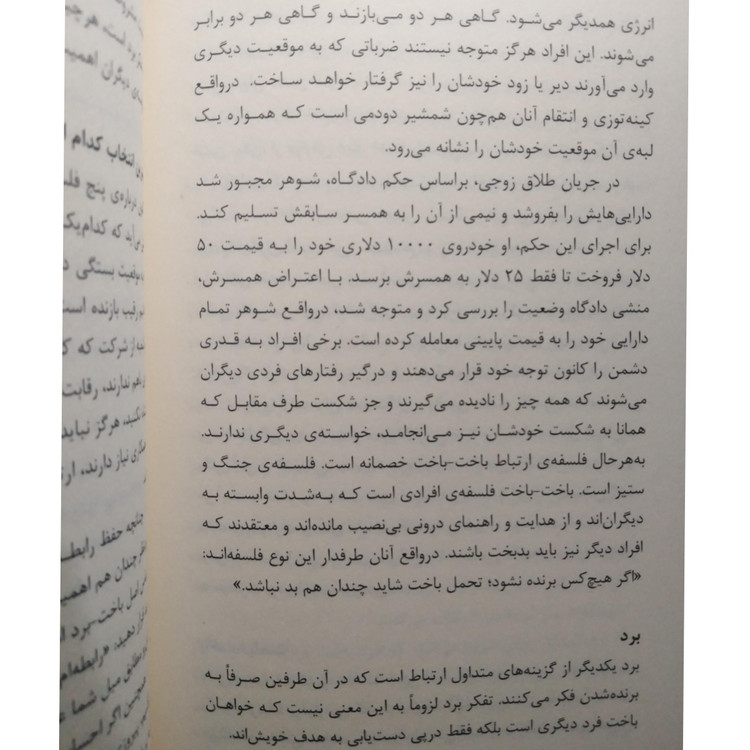 انرژی همدیگر می‌شود. گاهی هر دو می‌بازند و گاهی هر دو برابر
می‌شوند. این افراد هرگز متوجه نیستند ضرباتی که به موقعیت دیگری
وارد می‌آورند دیر یا زود خودشان را نیز گرفتار خواهد ساخت. درواقع
کینه‌توزی و انتقام آنان هم‌چون شمشیر دودمی است که همواره یک
لبه‌ی آن موقعیت خودشان را نشانه می‌رود.
در جریان طلاق زوجی، براساس حکم دادگاه، شوهر مجبور شد
دارایی‌هایش را بفروشد و نیمی از آن را به همسر سابقش تسلیم کند.
برای اجرای این حکم، او خودروی ۱۰۰۰۰ دلاری خود را به قیمت ۵۰
دلار فروخت تا فقط ۲۵ دلار به همسرش برسد. با اعتراض همسرش،
منشی دادگاه وضعیت را بررسی کرد و متوجه شد، درواقع شوهر تمام
دارایی خود را به قیمت پایینی معامله کرده است. برخی افراد به قدری
دشمن را کانون توجه خود قرار می‌دهند و درگیر رفتارهای فردی دیگران
می‌شوند که همه چیز را نادیده می‌گیرند و جز شکست طرف مقابل که
همانا به شکست خودشان نیز می‌انجامد، خواسته‌ی دیگری ندارند.
به‌هرحال فلسفه‌ی ارتباط باخت-باخت خصمانه است. فلسفه‌ی جنگ و
ستیز است. باخت-باخت فلسفه‌ی افرادی است که به‌شدت وابسته به
دیگران‌اند و از هدایت و راهنمای درونی بی‌نصیب مانده‌اند و معتقدند که
افراد دیگر نیز باید بدبخت باشند. درواقع آنان طرفدار این نوع فلسفه‌اند:
«اگر هیچ‌کس برنده نشود؛ تحمل باخت شاید چندان هم بد نباشد.»
برد
برد یکدیگر از گزینه‌های متداول ارتباط است که در آن طرفین صرفاً به
برنده‌شدن فکر می‌کنند. تفکر برد لزوماً به این معنی نیست که خواهان
باخت فرد دیگری است بلکه فقط درپی دست‌یابی به هدف خویش‌اند.